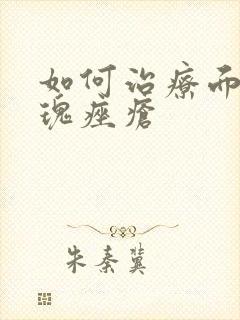 如何治療而
瑰痤瘡
朱秦冀